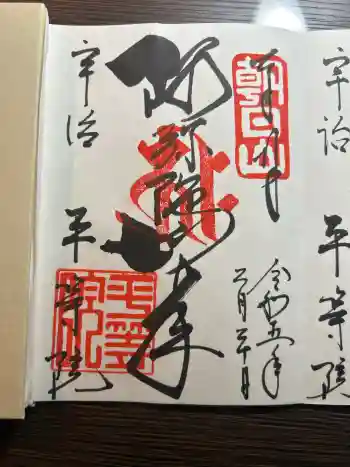 宇治 平等院
朝日山
令和五年
阿弥陀如来
宇治 平等院
平等院